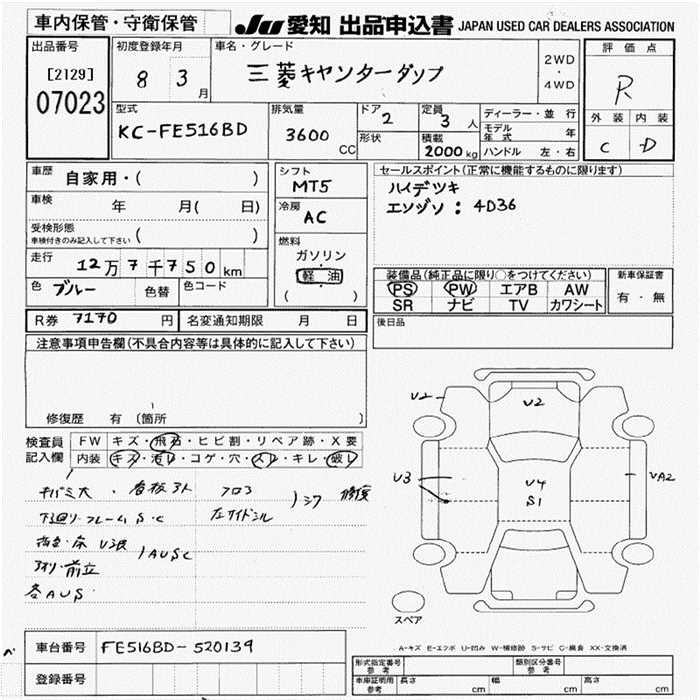 車内保管・守衛保管
JU 愛知 出品申込書 JAPAN USED CAR DEALERS ASSOCIATION
出品番号
[2129]
07023
初度登録年月
8 3 月
車名・グレード
三菱キャンターダンプ
2WD
・
4WD
評価点
R
外装 内装
C D
型式
KC-FE516BD
排気量
3600 CC
ドア 2
形状
定員 3 人
積載 2000 kg
ディーラー・並 行
モデル年式 年
ハンドル 左・右
車歴 自家用・( )
車検 年 月( 日)
受検形態 ( )
車検付きのみ記入して下さい
走行 12万7千750km
色 ブルー 色替 色コード
シフト
MT5
冷房
AC
燃料
ガソリン
軽 油
( )
セールスポイント(正常に機能するものに限ります)
ハイデッキ
エンジン:4D36
装備品(純正品に限り○をつけてください)
PS PW エアB AW
SR ナビ TV カワシート
新車保証書
有・無
後日品
R券 7170 円 名変通知期限 月 日
注意事項申告欄(不具合内容等は具体的に記入して下さい)
修復歴 有 (箇所 )
検査員記入欄
FW キズ・飛石・ヒビ割・リペア跡・X要
内装 キズ・汚レ・コゲ・穴・スレ・キレ・破レ
看板跡 フロア
下廻り・フレームS・C 左サイドシル
AUSC
各AUS
U2
U2
U3
U4
S1
UA2
スペア
A-キズ E-エクボ U-凹み W-補修跡 S-サビ C-腐食 XX-交換済
車台番号 FE516BD-520139
登録番号
形式指定番号 参考
類別区分番号 参考
車庫証明用 参考 長さ cm 幅 cm 高さ cm